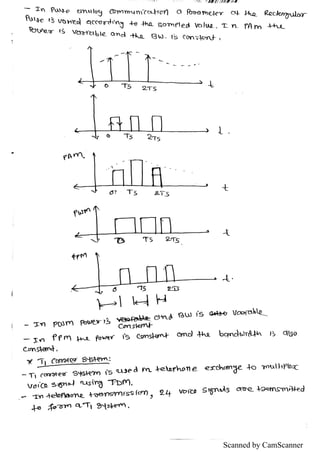 - In Pulse analog communication a Parameter of the Rectangular
Pulse is varied according to the sampled value. In PAM the
Power is variable and the BW. is constant.
0 TS 2TS t
0 TS 2TS t.
PAM
0T TS 2TS t
PWM
TS 2TS t
PPM
0 TS 2TS t.
- In PWM Power is variable and BW is variable
Constant
- In PPM the power is constant and the bandwidth is also
Constant.
* T1 carrier System:
- T1 carrier System is used in telephone exchange to multiplex
voice signal using TDM.
- In telephone transmission, 24 voice signals are transmitted
to form a T1 system.
Scanned by CamScanner